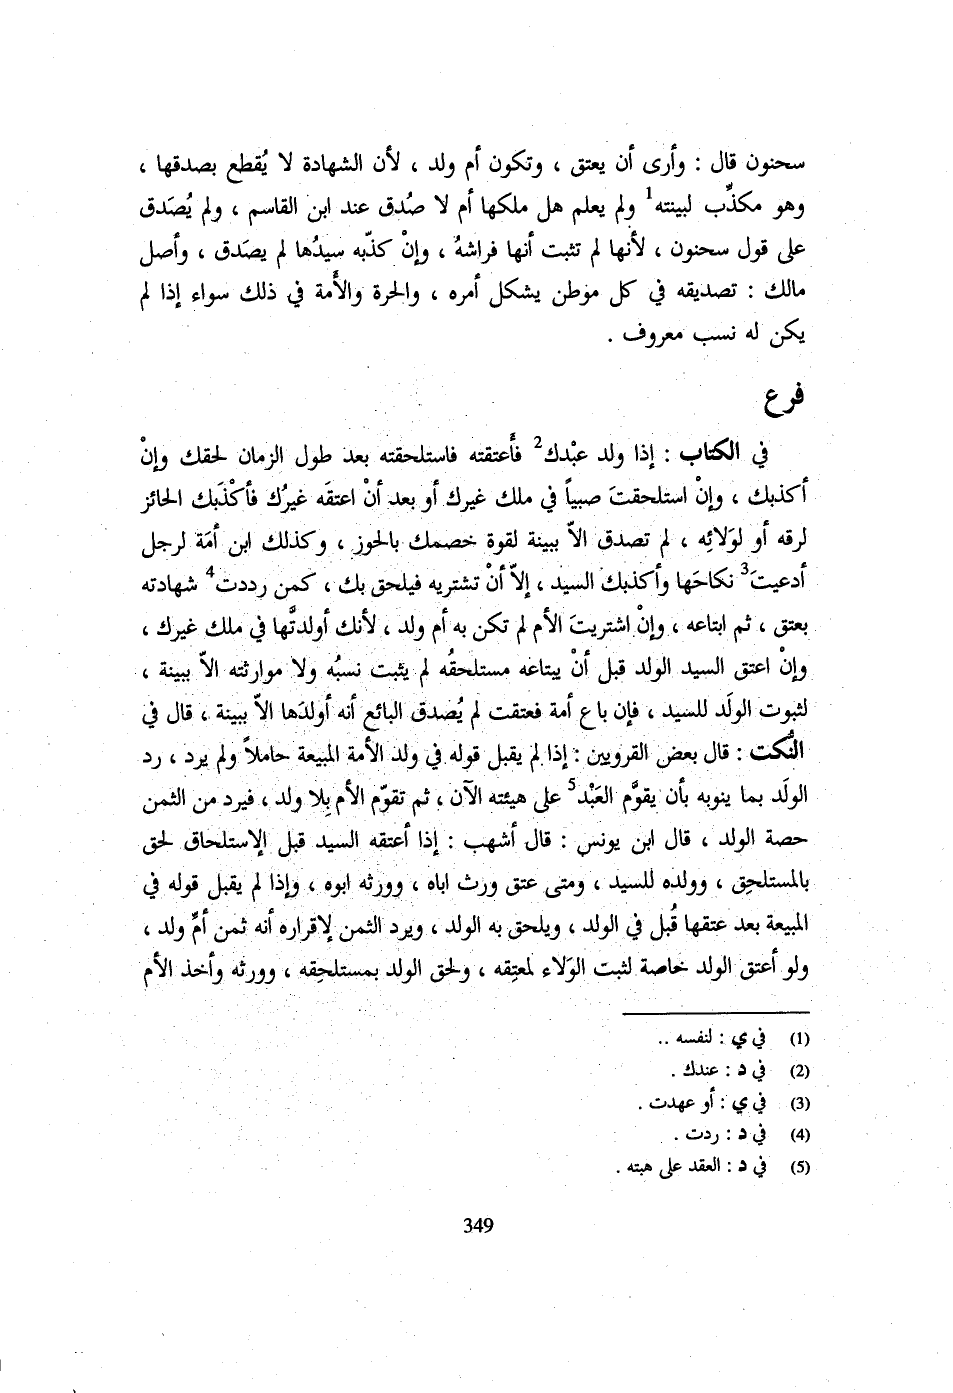 سحنون قال : وأرى أن يعتق ، وتكون أم ولد ، لأن الشهادة لا يُقطع بصدقها ،
وهو مكذِّب لبينته1 ولم يعلم هل ملكها أم لا صُدق عند ابن القاسم ، ولم يُصَدق
على قول سحنون ، لأنها لم تثبت أنها فراشهُ ، وإنْ كذّبه سيدُها لم يصَدق ، وأصل
مالك : تصديقه في كل موطن يشكل أمره ، والحرة والأَمة في ذلك سواء إذا لم
يكن له نسب معروف .
فرع
في الكتاب : إذا ولد عبْدك2 فأَعتقته فاستلحقته بعد طول الزمان لحقك وإنْ
أكذبك ، وإنْ استلحقتَ صبياً في ملك غيرك أو بعد أنْ اعتقَه غيرُك فأكْذَبك الحائز
لرقه أو لوَلائِه ، لم تصدق الاّ ببينة لقوة خصمك بالحوز ، وكذلك ابن أمَة لرجل
أدعيتَ3 نكاحَها وأكذبك السيد ، إلاّ أنْ تشتريه فيلحق بك ، كمن رددت4 شهادته
بعتق ، ثم ابتاعه ، وإنْ اشتريتَ الأم لم تكن به أم ولد ، لأنك أولدتَّها في ملك غيرك ،
وإنْ اعتق السيد الولد قبل أنْ يبتاعه مستلحقُه لم يثبت نسبُه ولا موارثته الاّ ببينة ،
لثبوت الولَد للسيد ، فإن باع أمة فعتقت لم يُصدق البائع أنه أولدَها الاّ ببينة ، قال في
النُّكت : قال بعض القرويين : إذا لم يقبل قوله في ولد الأمة المبيعة حاملاً ولم يرد ، رد
الولَد بما ينوبه بأن يقوَّم العَبْد5 على هيئته الآن ، ثم تقوّم الأم بِلا ولد ، فيرد من الثمن
حصة الولد ، قال ابن يونس : قال أشهب : إذا أعتقه السيد قبل الإستلحاق لحق
بالمستلحِق ، وولده للسيد ، ومتى عتق ورث اباه ، وورثه ابوه ، وإذا لم يقبل قوله في
المبيعة بعد عتقها قُبل في الولد ، ويلحق به الولد ، ويرد الثمن لإقراره أنه ثمن أمِّ ولد ،
ولو أعتق الولد خاصة لثبت الوَلاء لمعتِقه ، ولحق الولد بمستلحِقه ، وورثه وأخذ الأم
(1) في ي : لنفسه ..
(2) في د : عندك .
(3) في ي : أو عهدت .
(4) في د : ردت .
(5) في د : العقد على هبته .
349